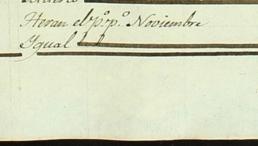 Heran el p.º p.º Noviembre
Ygual